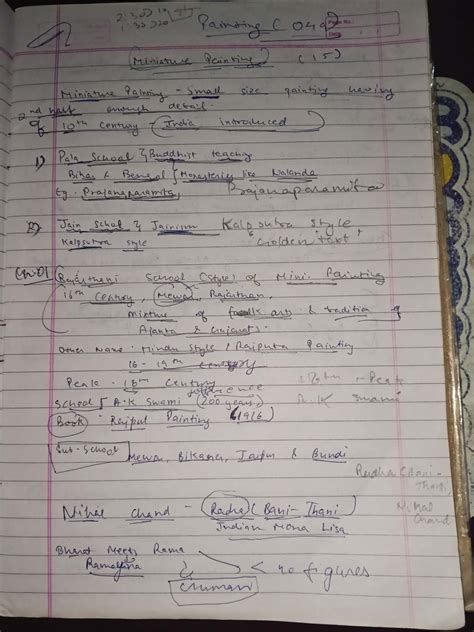 Painting (049)
Miniature Painting (15)
Miniature Painting - Small size painting having
2nd half enough detail.
of 10th Century - India introduced
1) Pala School } Buddhist teaching
Bihar & Bengal } Monasteries like Nalanda
Eg. Prajanaparamita Prajanaparamita
2) Jain School } Jainism Kalpsutra style
Kalpsutra style "Golden text"
Ch-01 Rajasthani School (Style) of Mini. Painting
16th Century, Mewar, Rajasthan,
mixture of folk arts & tradition of
Ajanta & Gujarat.
Other Name - Hindu Style / Rajputa Painting
16 - 19th Century
Peak - 18th Century 18th - Peak
School A.K Swami (200 years) A.K Swami
Book - Rajput Painting (1916)
Sub-School Mewar, Bikaner, Jaipur & Bundi
Nihal Chand - Radha (Bani-Thani)
Indian Mona Lisa
Nihal Chand
Bharat Meets Rama
Ramayana < 40 figures